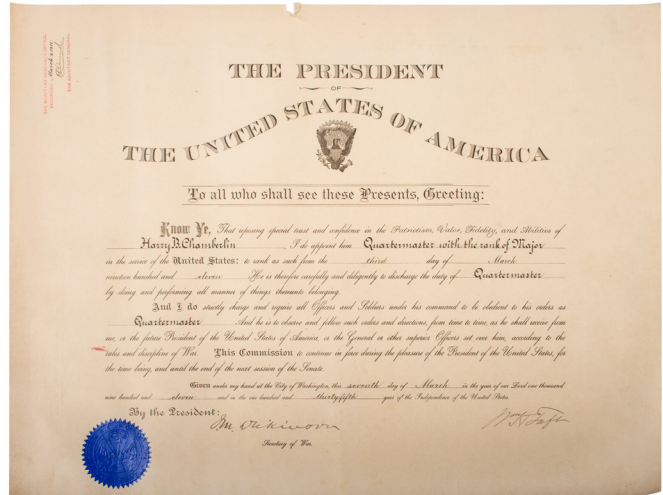 THE PRESIDENT
OF
THE UNITED STATES OF AMERICA
To all who shall see these Presents, Greeting:
Know Ye, That reposing special trust and confidence in the Patriotism, Valor, Fidelity, and Abilities of
Harry B. Chamberlin I do appoint him Quartermaster with the rank of Major
in the service of the United States: to rank as such from the third day of March
nineteen hundred and eleven He is therefore carefully and diligently to discharge the duty of Quartermaster
by doing and performing all manner of things thereunto belonging.
And I do strictly charge and require all Officers and Soldiers under his command to be obedient to his orders as
Quartermaster And he is to observe and follow such orders and directions, from time to time, as he shall receive from
me, or the future President of the United States of America, or the General or other superior Officers set over him, according to the
rules and discipline of War. This Commission to continue in force during the pleasure of the President of the United States, for
the time being, and until the end of the next session of the Senate.
Given under my hand at the City of Washington, this seventh day of March in the year of our Lord one thousand
nine hundred and eleven and in the one hundred and thirtyfifth year of the Independence of the United States.
By the President:
J.M. Dickinson
Wm H Taft
Secretary of War.